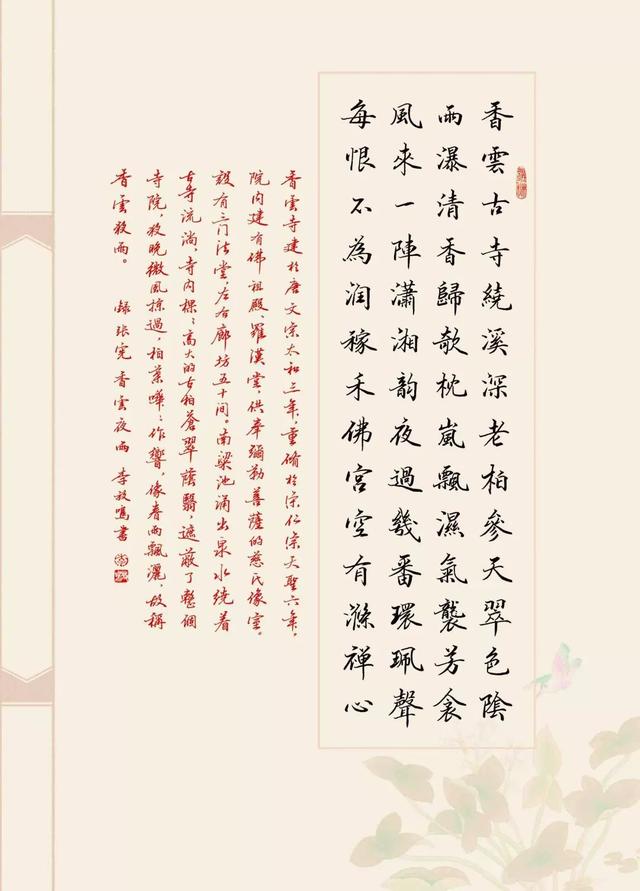 香雲古寺繞溪深老柏參天翠色陰
雨瀑清香歸欹枕嵐飄濕氣襲芳衾
風來一陣瀟湘韵夜過幾番環珮聲
每恨不為润稼禾佛宫空有滌禪心
香雲寺建於唐文宗太和三年,重脩於宋仁宗天聖六年,
院内建有佛祖殿、羅漢堂,供奉彌勒菩薩的慈氏像室。
設有三门法堂,左右廊坊五十间。南梁池涌出泉水绕着
古寺流淌,寺内棵:高大的古柏蒼翠蔭翳,遮蔽了整個
寺院,夜晚微風掠過,柏葉嘩:作響,像春雨飄灑,故稱
香雲夜雨。 錄张完香雲夜雨 李放鳴書